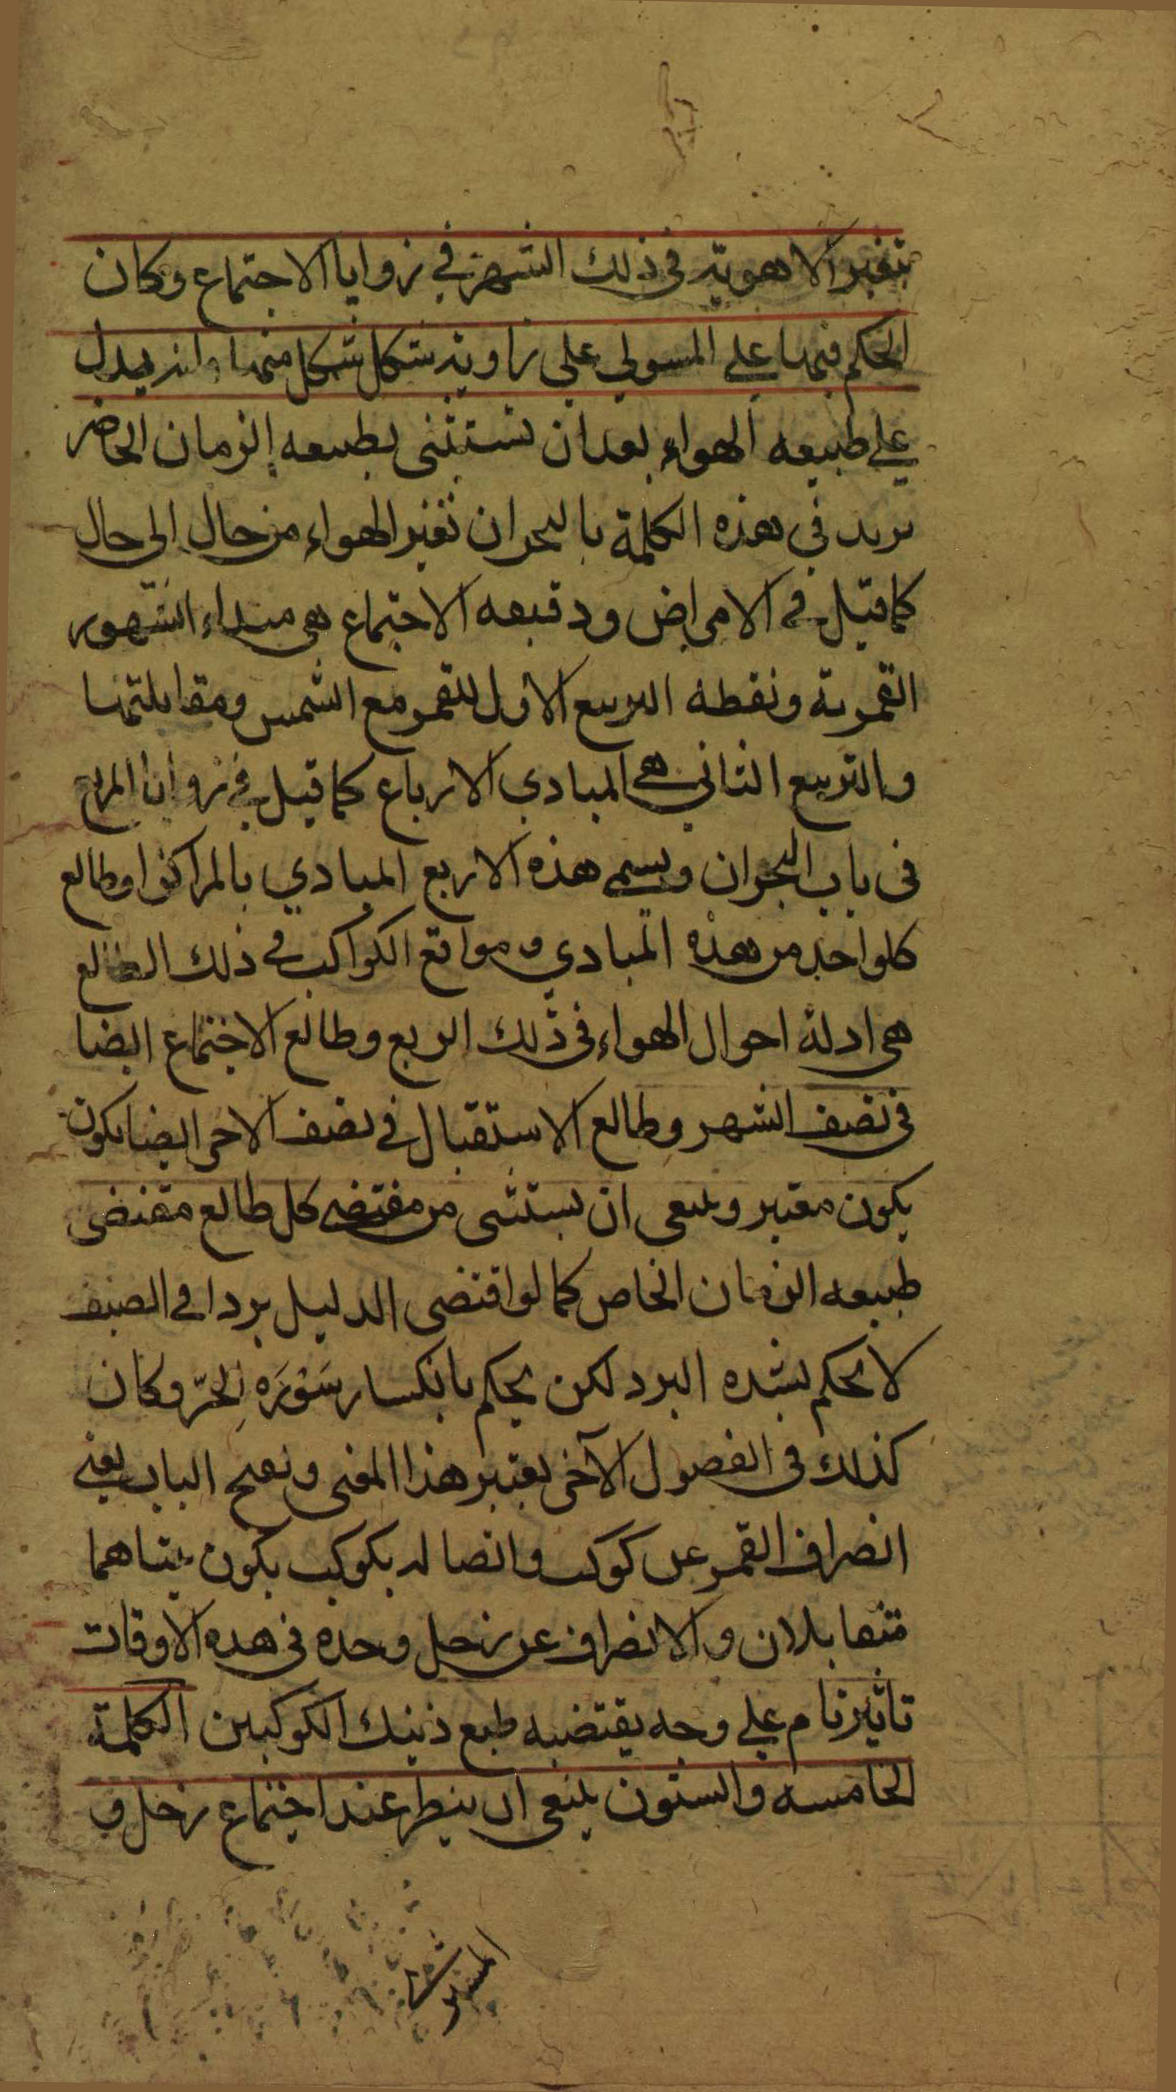 تتغير الاهوية في ذلك الشهر في زوايا الاجتماع وكان
الحكم فيها على المسولي على زاوية شكل شكل منها وانه يدل
على طبيعه الهواء بعد ان تستثنى بطبيعه الزمان الحاضر
يريد في هذه الكلمة بالبحران تغير الهواء من حال الى حال
كما قيل في الامراض ودقيقه الاجتماع هي مبداء الشهور
القمرية ونقطة التربيع الاول للقمر مع الشمس ومقابلتها
والتربيع الثاني هي المبادي الارباع كما قيل في زوايا
في باب البحران ويسمى هذه الاربع المبادي بالمراكز وطالع
كلواحد من هذه المبادي ومواقع الكواكب في ذلك الطالع
هي ادلة احوال الهواء في ذلك الربع وطالع الاجتماع ايضا
في نصف الشهر وطالع الاستقبال في نصف الاخر ايضا يكون
يكون معتبر وينبغي ان يستثنى من مقتضى كل طالع مقتضى
طبيعه الزمان الخاص كما لو اقتضى الدليل بردا في الصيف
لا يحكم بشده البرد لكن يحكم بانكسار سَوْرَه الحرّ وكان
كذلك في الفصول الآخر يعتبر هذا المعنى وتفتح الباب يعني
انصراف القمر عن كوكب واتصاله بكوكب يكون بيتاهما
متقابلان والانصراف عن زحل وحده في هذه الاوقات
تاثير تام على وجه يقتضيه طبع ذينك الكوكبين الكلمة
الخامسه والستون ينبغي ان ينظر عند اجتماع زحل و
المشتري